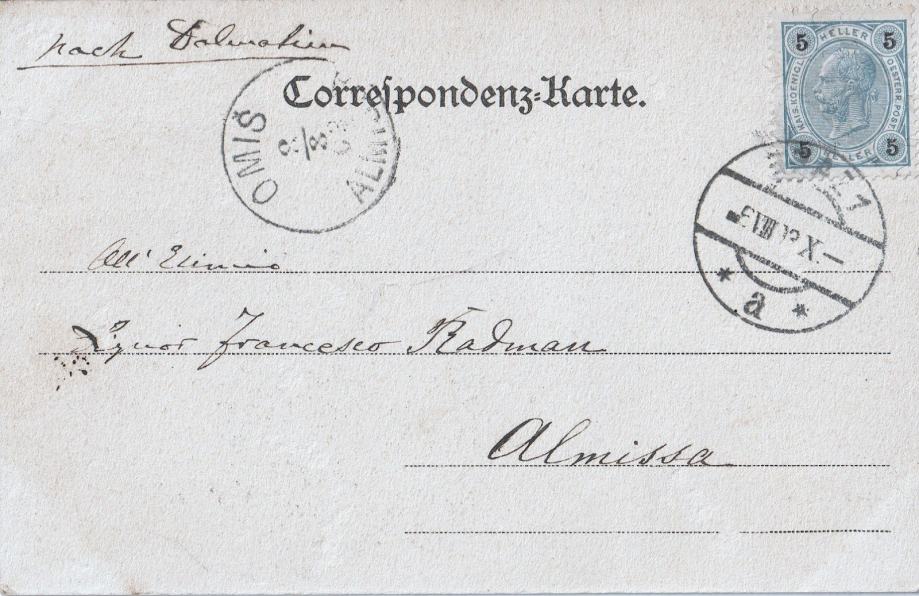 nach Dalmatien
5 HELLER 5
KAIS. KOENIGL. OESTERR. POST
5 HELLER 5
Correſpondenz=Karte.
OMIŠ
8/8
ALMI
Z 1
X.—
* a *
All'
Signor Francesco Radman
Almissa